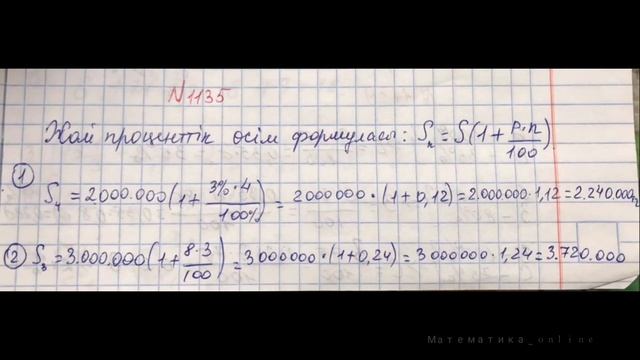 N1135
Жай проценттік өсім формуласы: Sₙ = S(1 + p·n/100)
① S₄ = 2000.000(1 + 3%·4/100%) = 2000000·(1+0,12) = 2.000.000·1,12 = 2.240.000
② S₃ = 3.000.000(1 + 8·3/100) = 3000000·(1+0,24) = 3000000·1,24 = 3.720.000
Математика_online